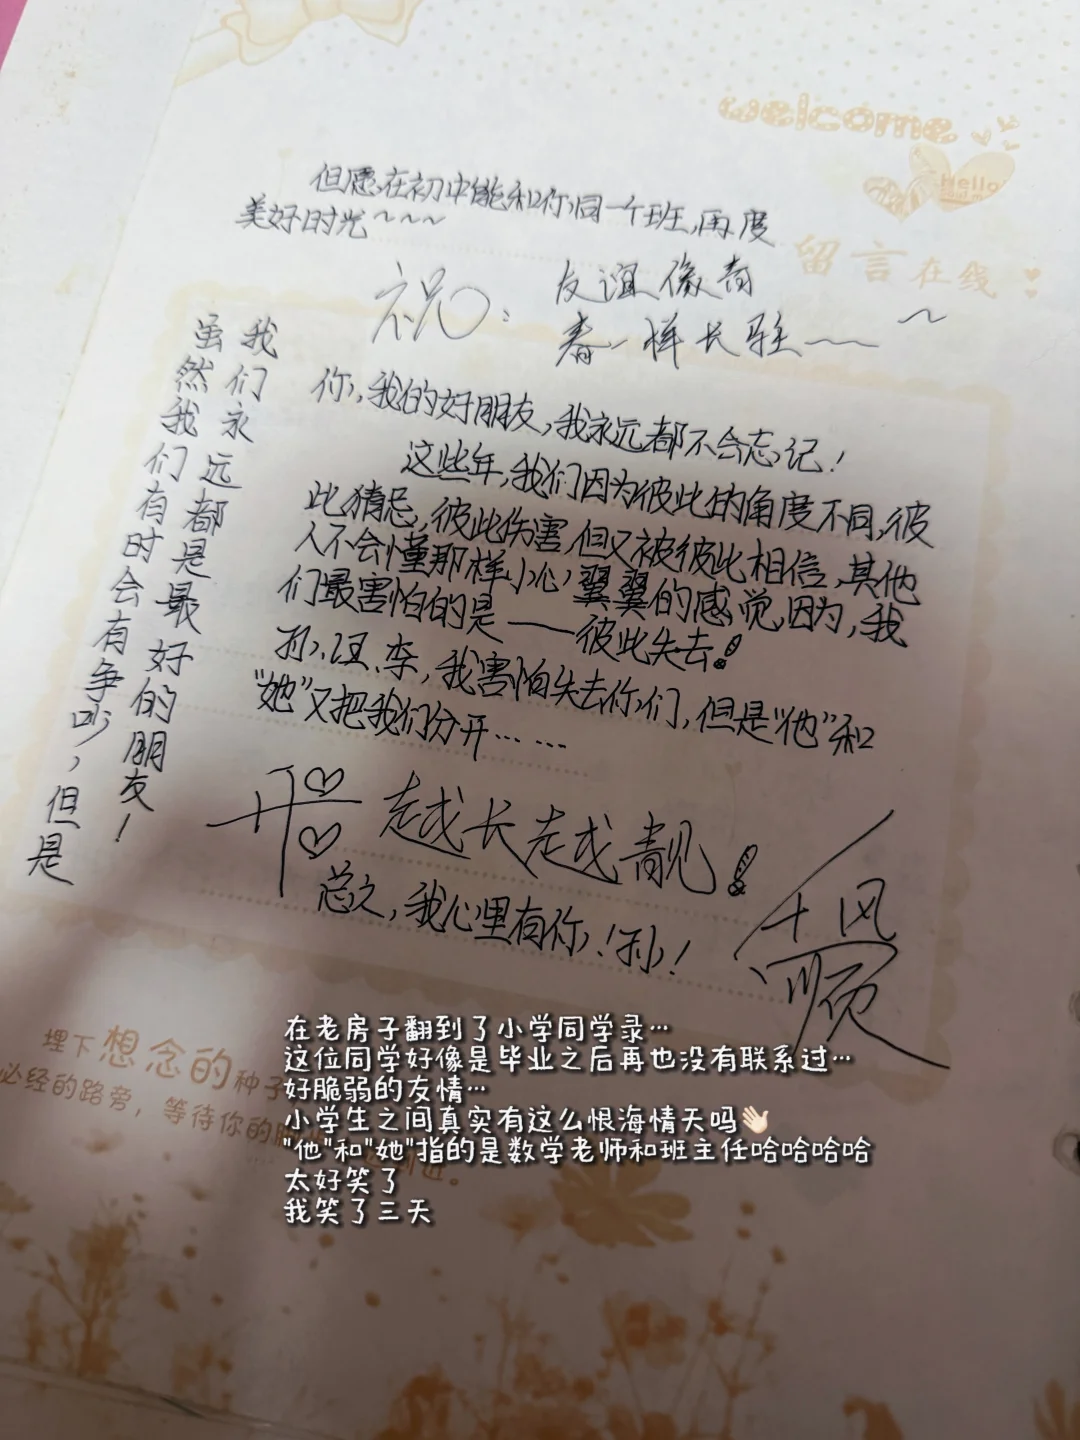 welcome
Hello
留言在线
但愿在初中能和你同一个班,再度
美好时光~~~
祝:
友谊像青
春一样长驻~~
你,我的好朋友,我永远都不会忘记!
这些年,我们因为彼此的角度不同,彼
此猜忌,彼此伤害,但又被彼此相信,其他
人不会懂那样小心翼翼的感觉,因为,我
们最害怕的是——彼此失去!
孙、汪、李,我害怕失去你们,但是“他”和
“她”又把我们分开……
虽然我们有时会有争吵,但是
我们永远都是最好的朋友!
开
越长越靓!
总之,我心里有你,!孙!
一帆风顺
埋下想念的种子
必经的路旁,等待你的
近。
在老房子翻到了小学同学录…
这位同学好像是毕业之后再也没有联系过…
好脆弱的友情…
小学生之间真实有这么恨海情天吗👋🏻
"他"和"她"指的是数学老师和班主任哈哈哈哈
太好笑了
我笑了三天